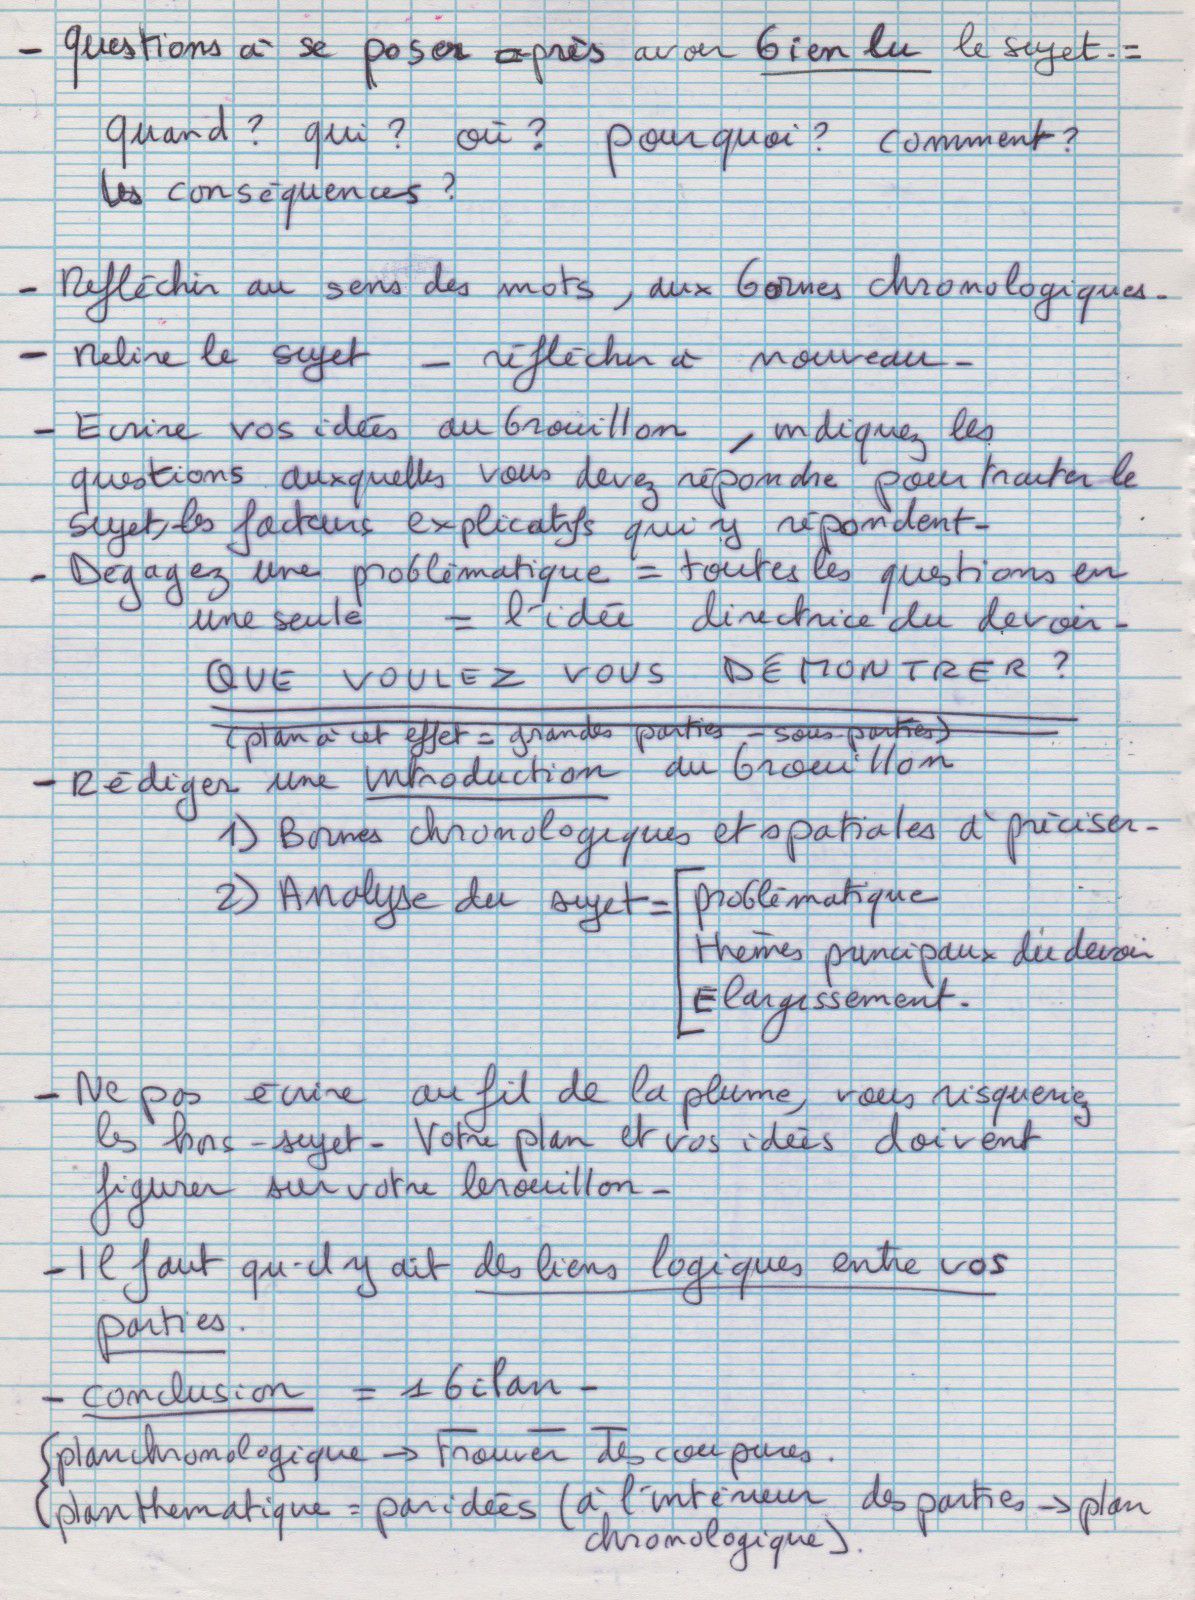 - Questions à se poser après avoir bien lu le sujet. =
Quand ? qui ? où ? pourquoi ? comment ?
les conséquences ?
- Réfléchir au sens des mots, aux bornes chronologiques -
- Relire le sujet - réfléchir à nouveau -
- Ecrire vos idées au brouillon, indiquez les
questions auxquelles vous devez répondre pour traiter le
sujet, les facteurs explicatifs qui y répondent -
- Dégagez une problématique = toutes les questions en
une seule = l'idée directrice du devoir -
QUE VOULEZ VOUS DÉMONTRER ?
(plan à cet effet = grandes parties - sous-parties)
- Rédiger une introduction au brouillon
1) Bornes chronologiques et spatiales à préciser -
2) Analyse du sujet = [ problématique
thèmes principaux du devoir
Elargissement -
- Ne pas écrire au fil de la plume, vous risqueriez
les hors-sujet - Votre plan et vos idées doivent
figurer sur votre brouillon -
- Il faut qu'il y ait des liens logiques entre vos
parties.
- conclusion = 1 bilan -
{ plan chronologique → Trouver des coupures.
( plan thématique = par idées (à l'intérieur des parties → plan
chronologique).